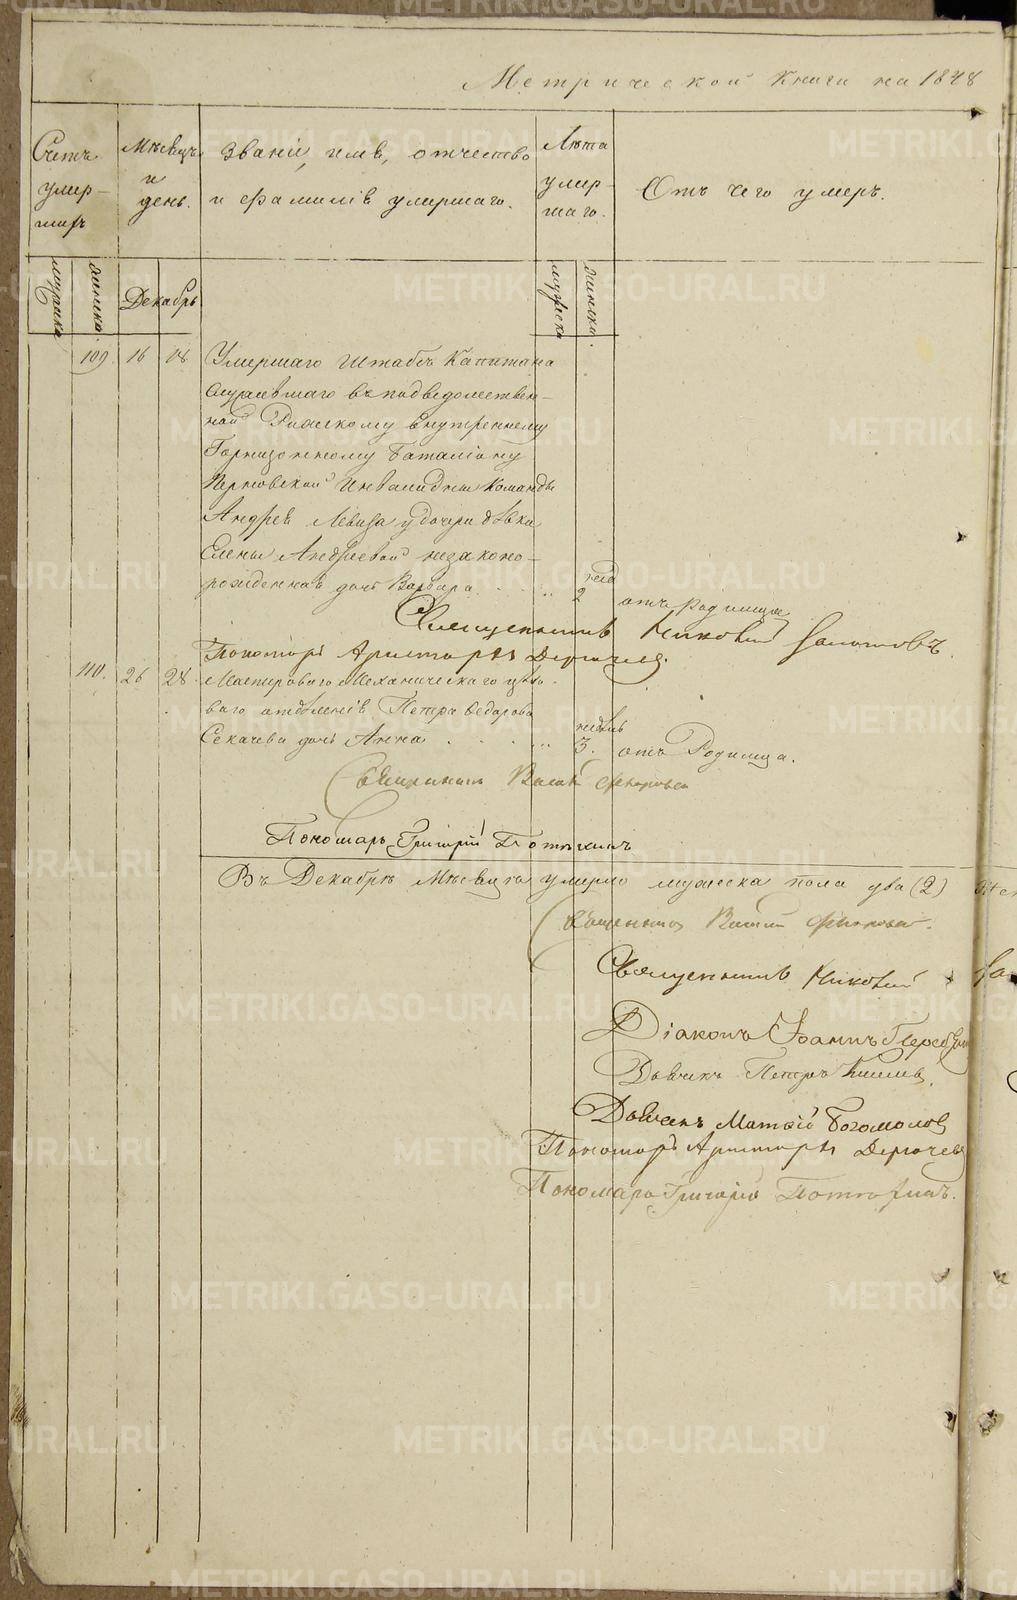 Метрической Книги на 1848
Счетъ умер-шихъ
Мѣсяцъ и день.
Званіе, имя, отчество
и фамилія умершаго.
Лѣта умер-шаго.
Отъ чего умеръ.
мужска
женска.
Декабрь
мужска
женска.
109 16 18 Умершаго Штабсъ Капитана
въ подведомствен-
ной Рижскому внутреннему
Гарнизонному баталіону
Перновской Инвалидной Команды
Андрея Левиза у дочери дѣвки
Елены Андреевой незаконо-
рожденная дочь Варвара 2 нед отъ Родимца
Священникъ Николай Золотовъ.
Пономарь Аристархъ Дерягинъ.
110. 26 28 Мастероваго Механическаго цехо-
ваго отдѣленія Петра Ѳедорова
Секачева дочь Анна 3. недѣль отъ Родимца.
Священникъ
Пономарь Григорій
Въ Декабрѣ Мѣсяцѣ умерло мужеска пола два (2)
Священникъ
Священникъ Николай
Діаконъ Іоаннъ
Дьячекъ Петръ
Дьячекъ Матѳій Богомолов
Пономарь Аристархъ
Пономарь Григорій
METRIKI.GASO-URAL.RU